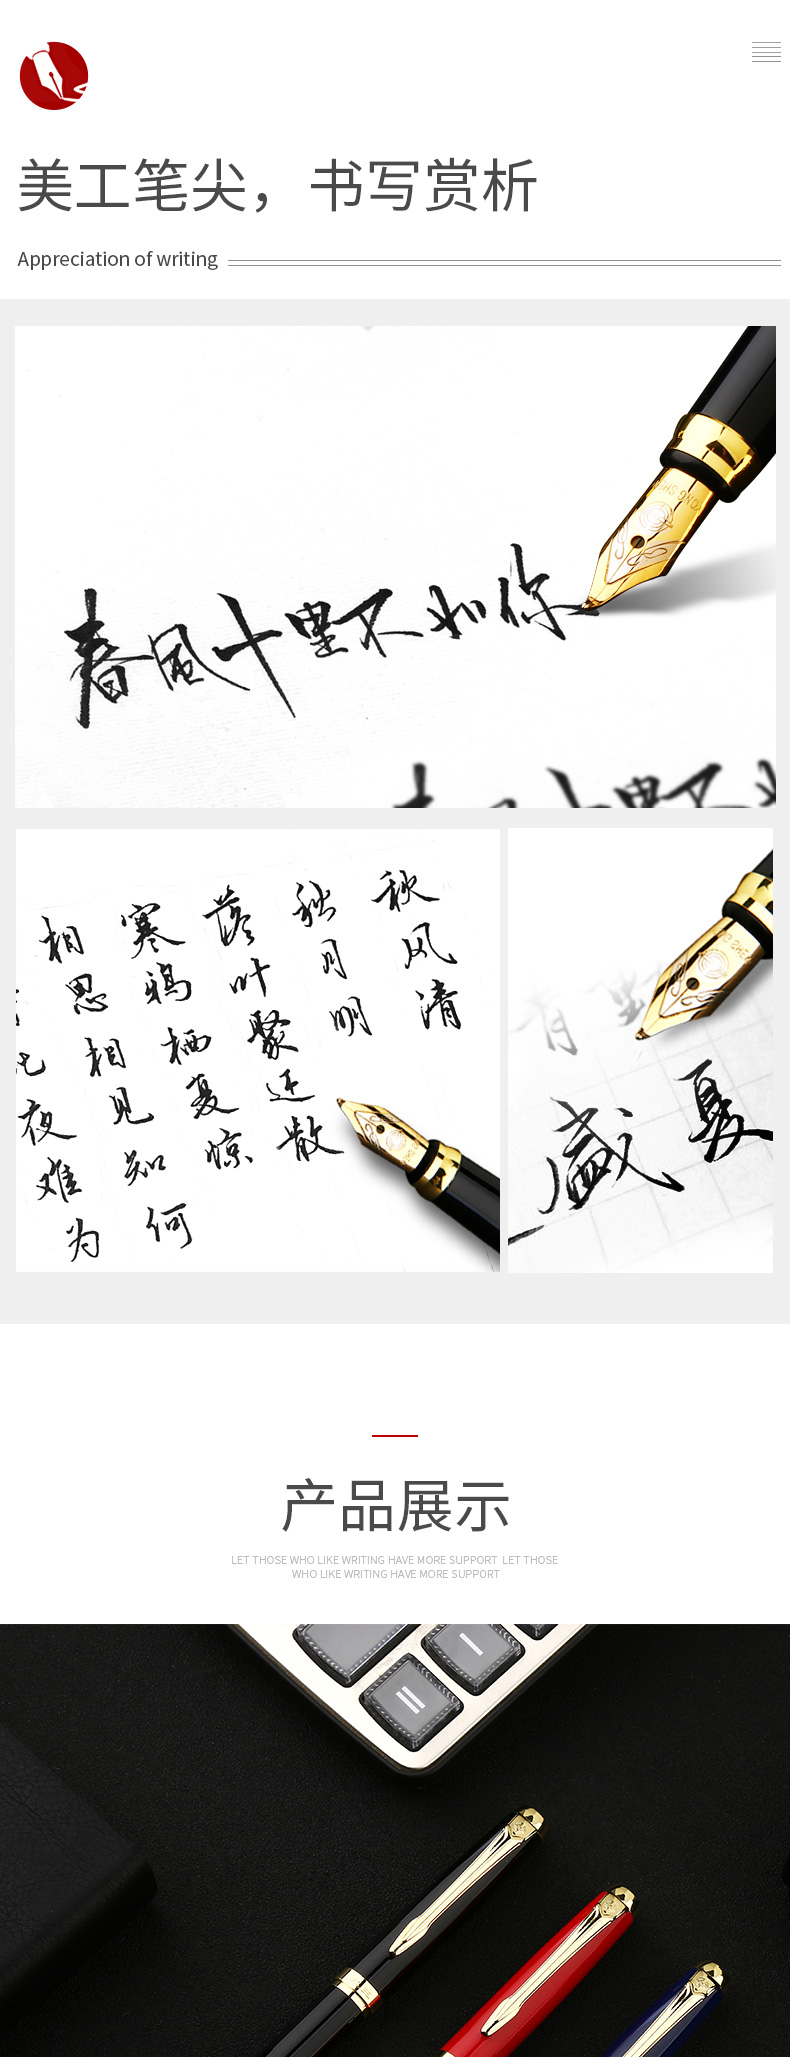 美工笔尖，书写赏析
Appreciation of writing
春风十里不如你
秋风清
秋月明
落叶聚还散
寒鸦栖复惊
相思相见知何
夜难为
夏
盛
产品展示
LET THOSE WHO LIKE WRITING HAVE MORE SUPPORT LET THOSE
WHO LIKE WRITING HAVE MORE SUPPORT